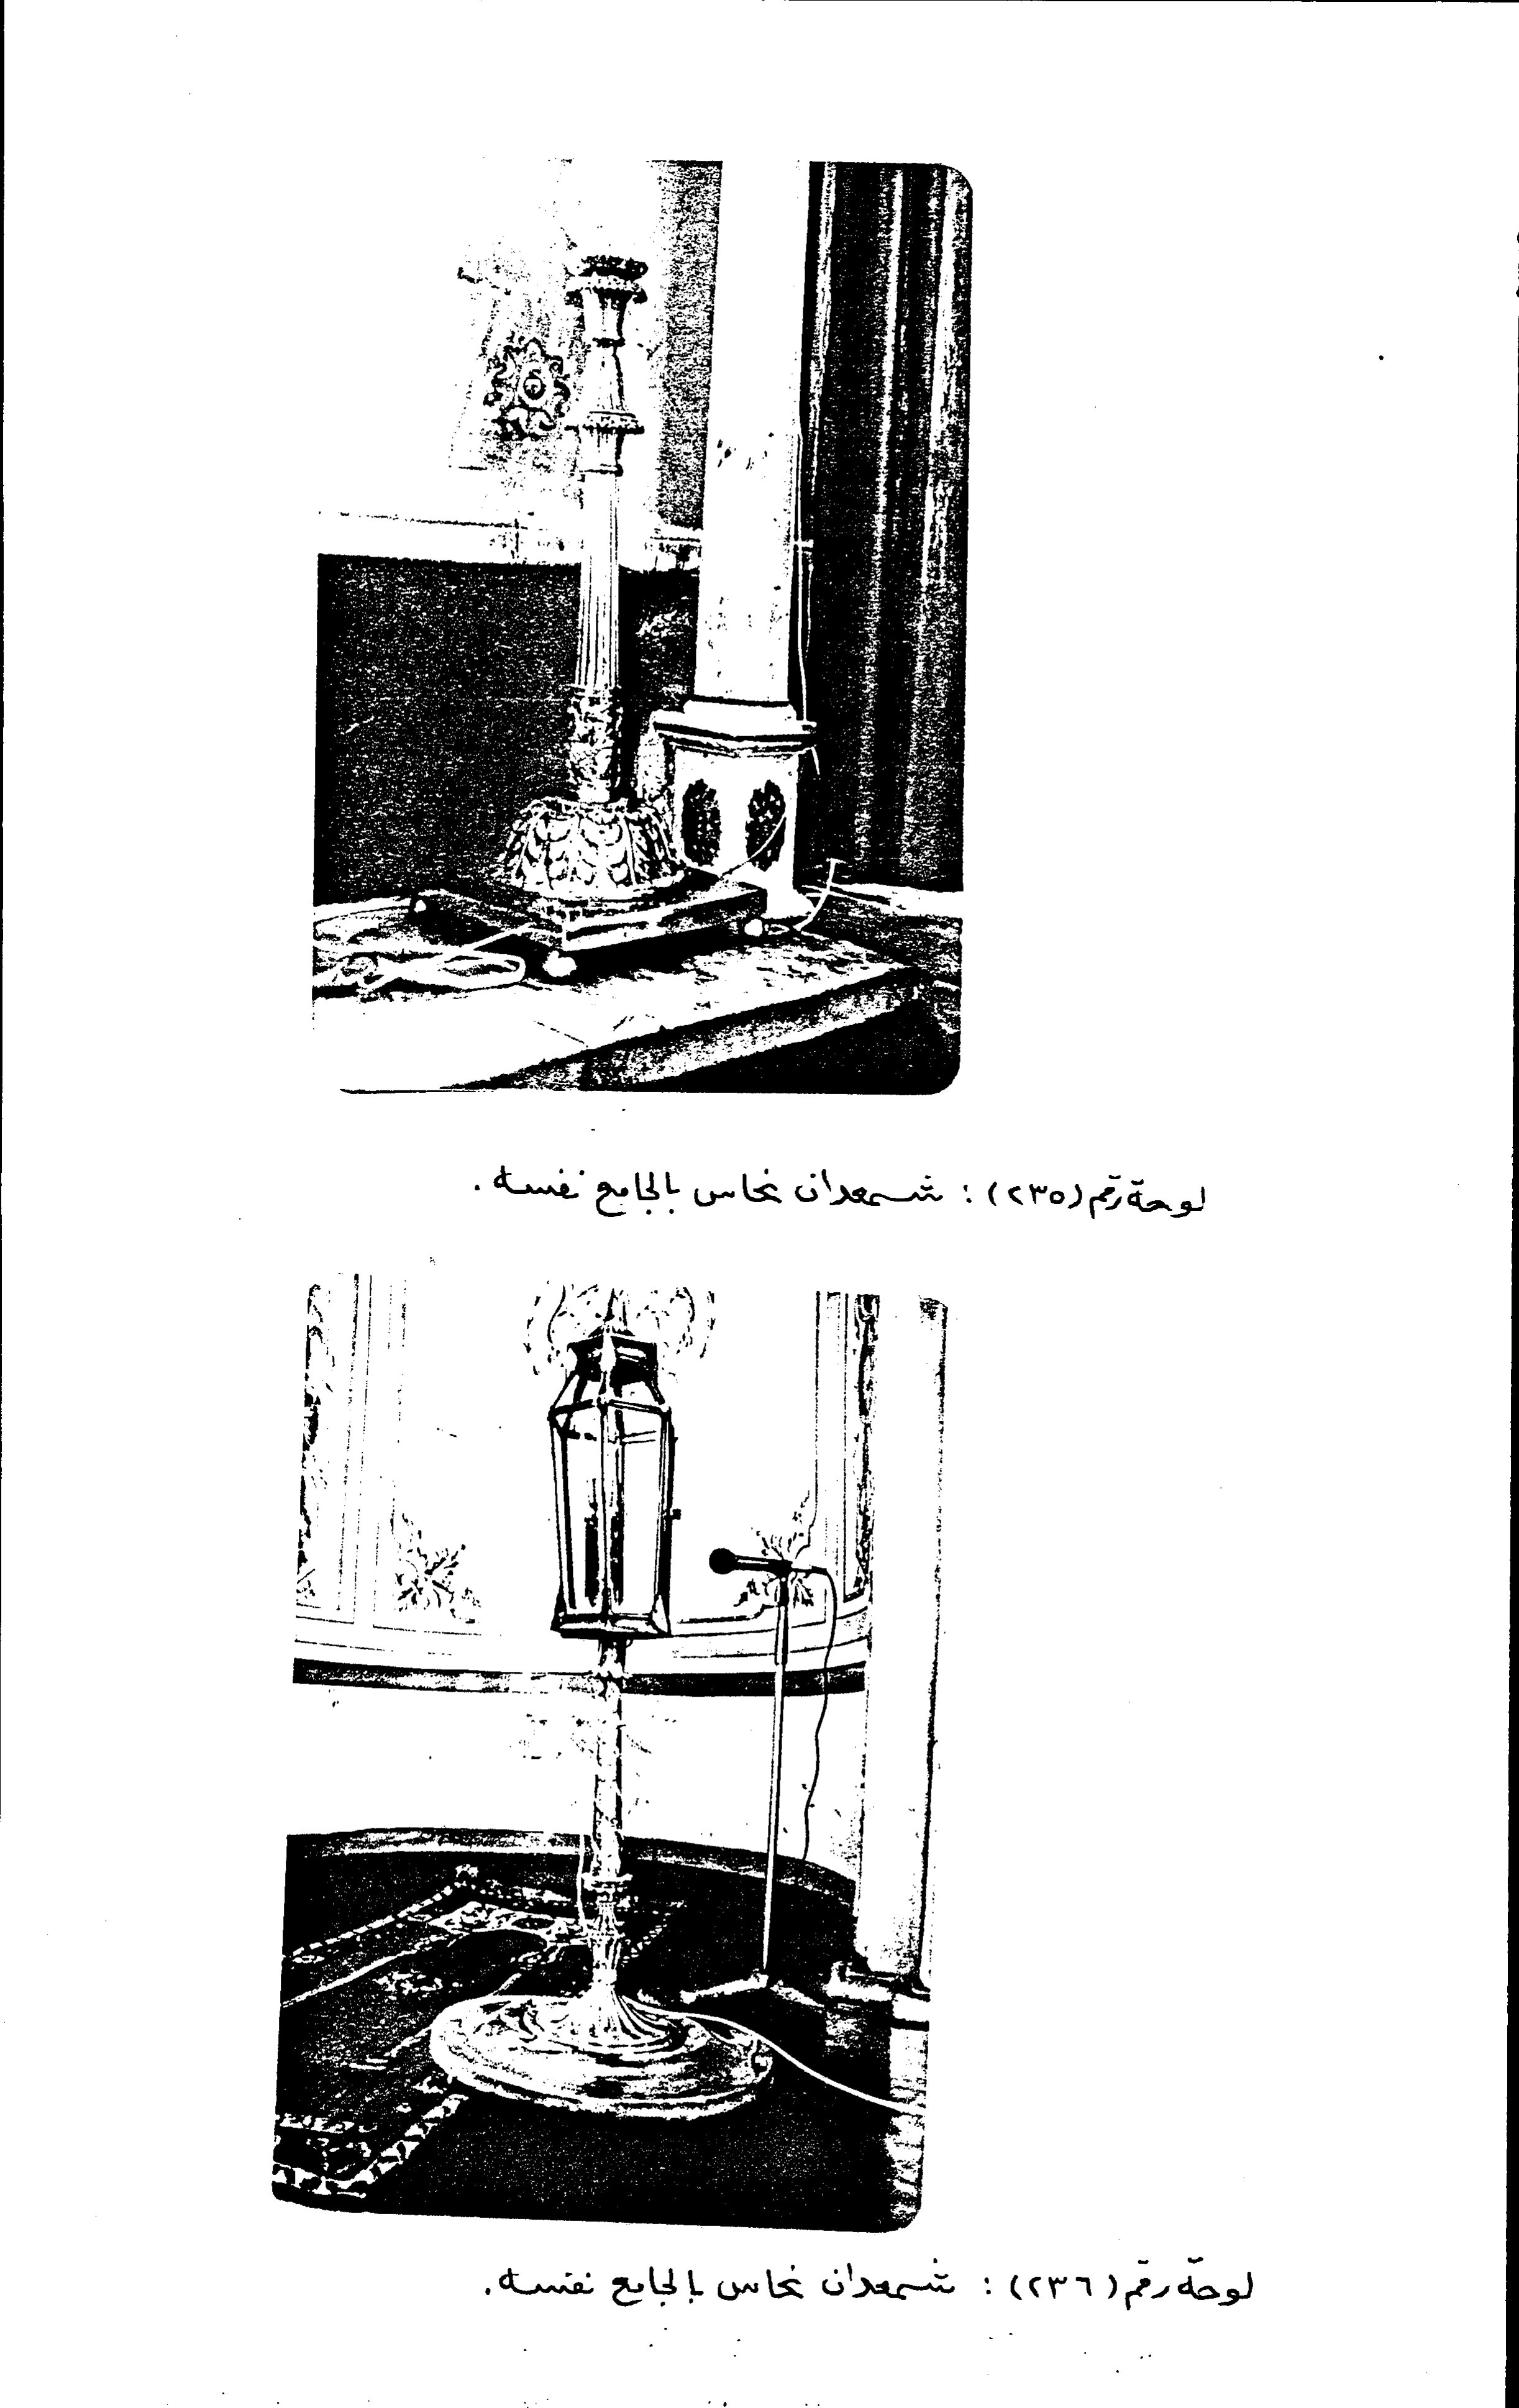 لوحة رقم (٢٣٥) : شمعدان نحاس بالجامع نفسه .
لوحة رقم (٢٣٦) : شمعدان نحاس بالجامع نفسه .